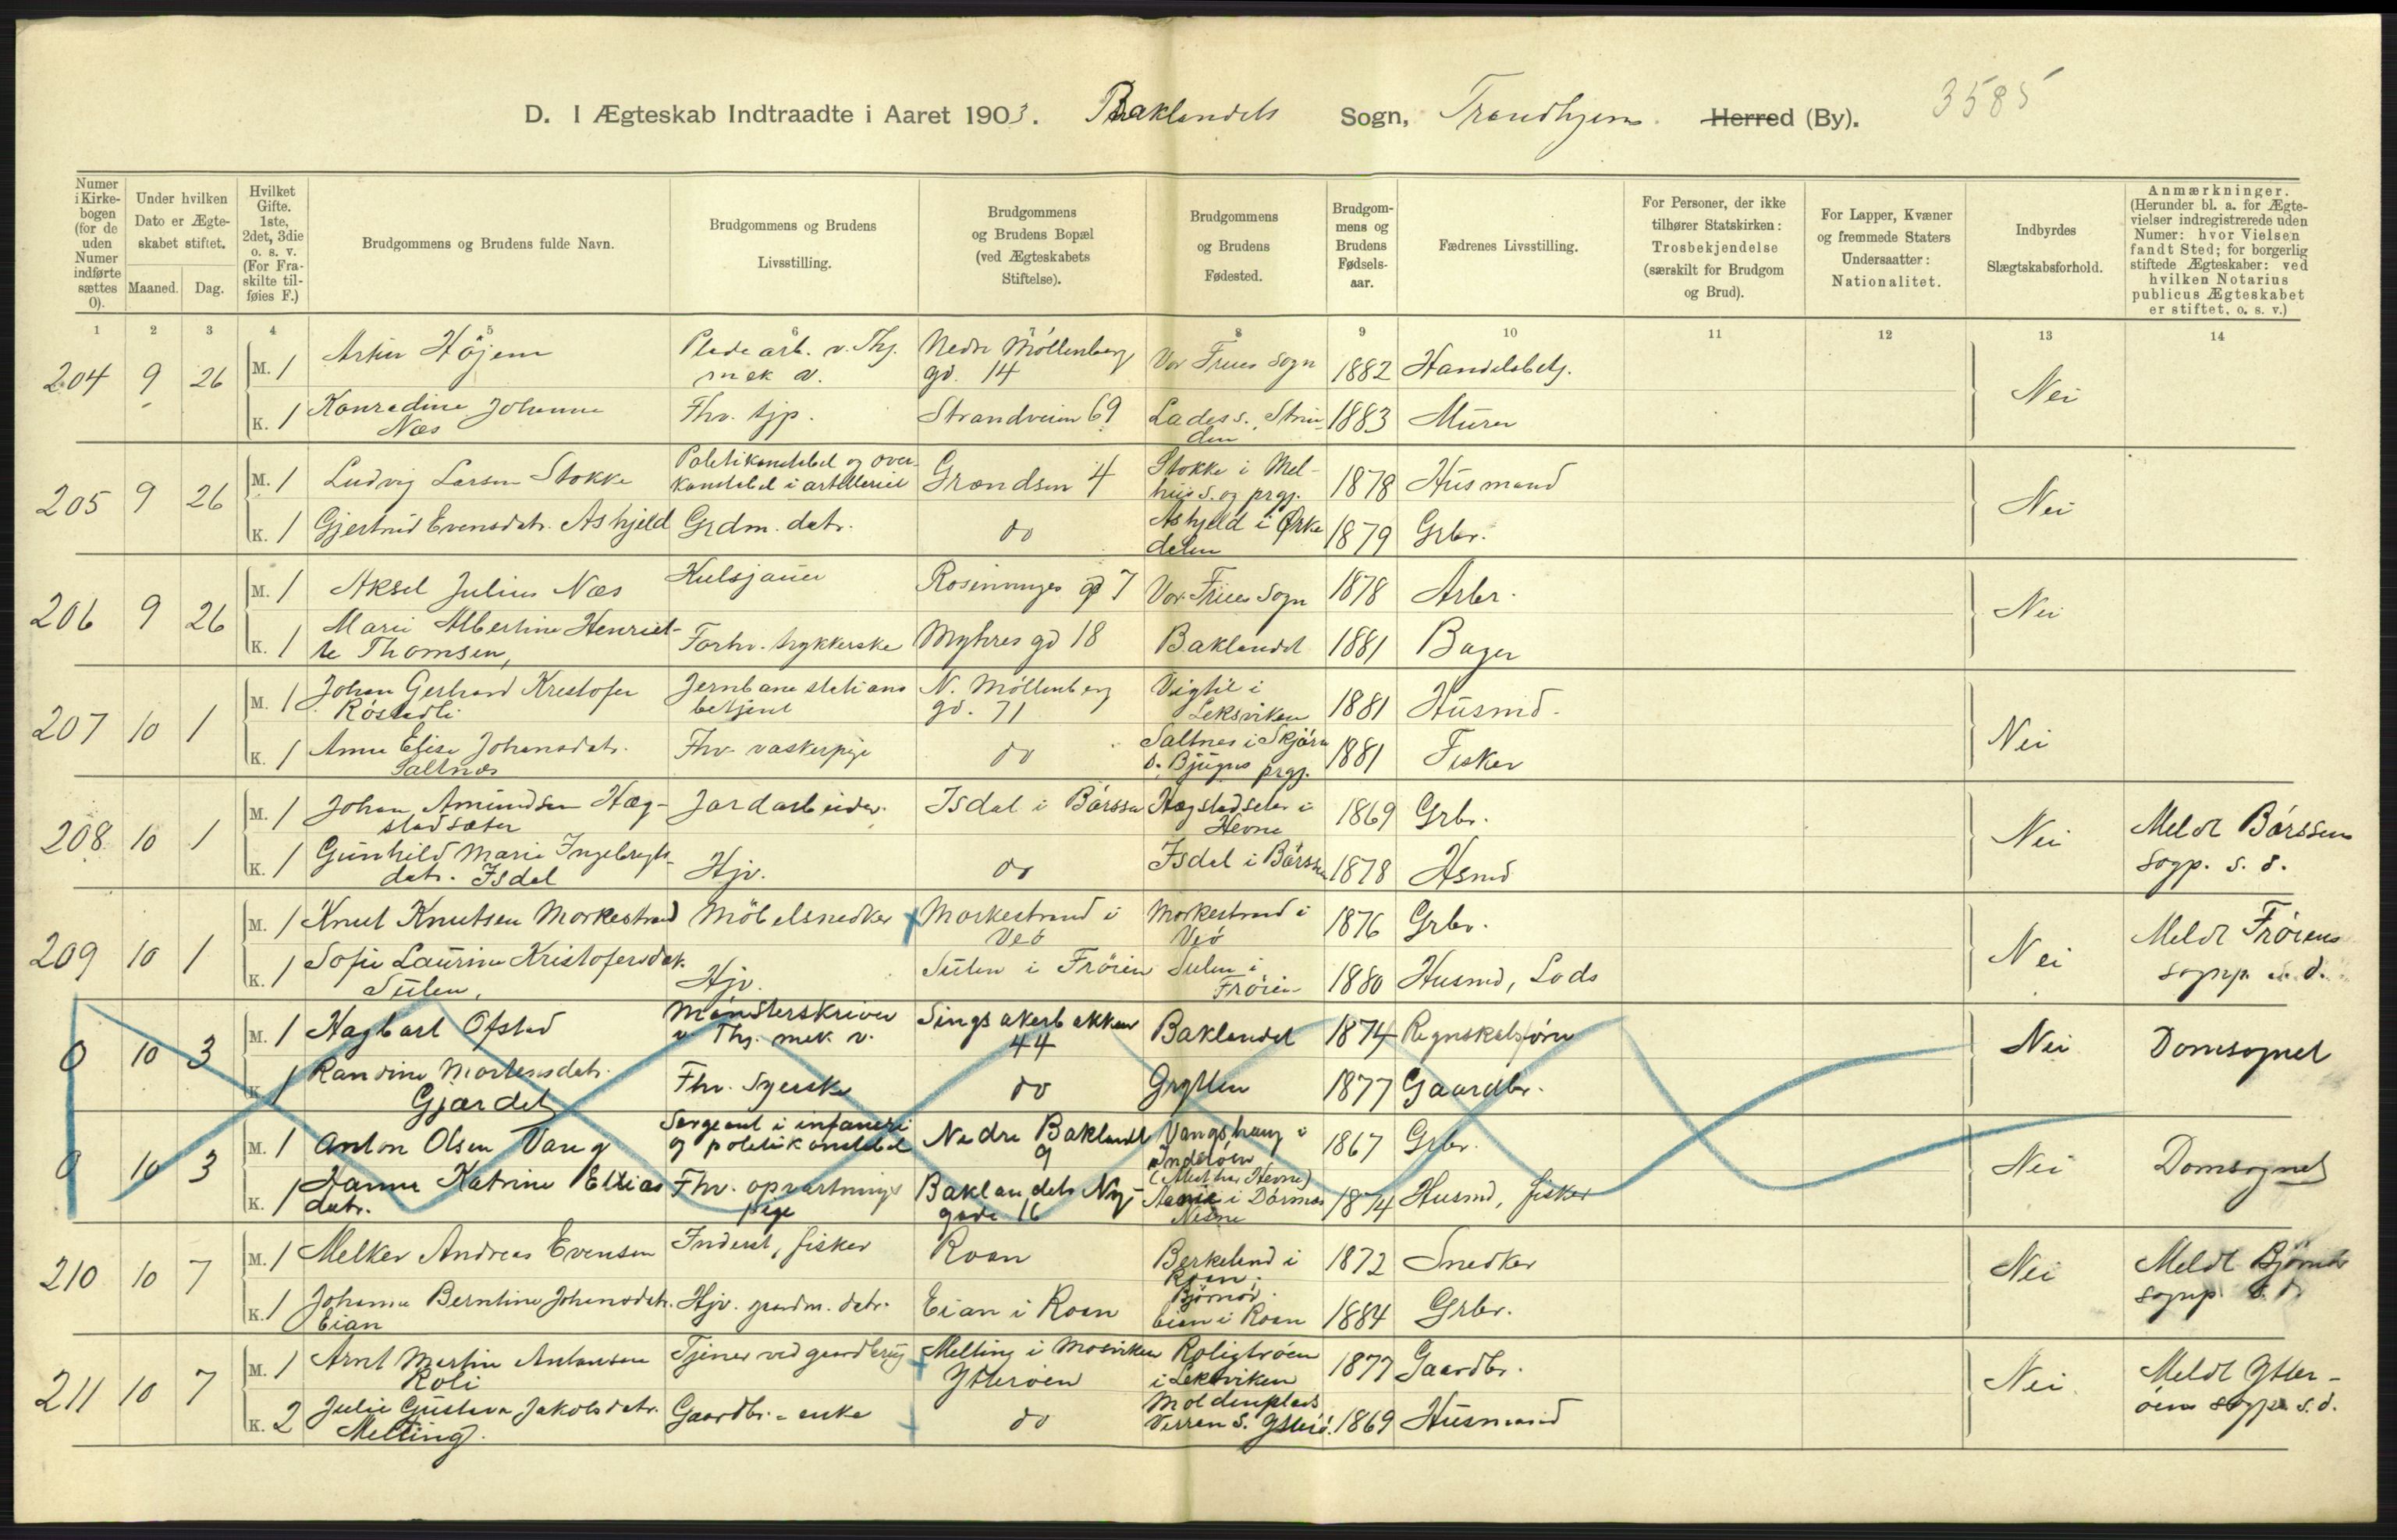 D. I Ægteskab Indtraadte i Aaret 1903. Baklandets Sogn, Trondhjems Herred (By). 3585
Numer i Kirkebogen (for de uden Numer indførte sættes 0).
Under hvilken Dato er Ægteskabet stiftet.
Maaned. Dag.
Hvilket Gifte. 1ste, 2det, 3die o. s. v. (For Fraskilte tilføies F.)
Brudgommens og Brudens fulde Navn.
Brudgommens og Brudens Livsstilling.
Brudgommens og Brudens Bopæl (ved Ægteskabets Stiftelse).
Brudgommens og Brudens Fødested.
Brudgommens og Brudens Fødselsaar.
Fædrenes Livsstilling.
For Personer, der ikke tilhører Statskirken: Trosbekjendelse (særskilt for Brudgom og Brud).
For Lapper, Kvæner og fremmede Staters Undersaatter: Nationalitet.
Indbyrdes Slægtskabsforhold.
Anmærkninger. (Herunder bl. a. for Ægtevielser indregistrerede uden Numer: hvor Vielsen fandt Sted; for borgerlig stiftede Ægteskaber: ved hvilken Notarius publicus Ægteskabet er stiftet, o. s. v.)
1 2 3 4 5 6 7 8 9 10 11 12 13 14
204 9 26 M. 1 Artur Höjem Pladearb. v. Thj. mek v. Nedre Möllenberg gd. 14 Vor Frues Sogn 1882 Handelsbetj. Nei
K. 1 Konradine Johanne Næs Fhv. tjp. Strandveien 69 Lades s., Strinden 1883 Murer
205 9 26 M. 1 Ludvig Larsen Stokke Politikonstabel og overkonstabel i artilleriet Grændsen 4 Stokke i Melhus s. og prgj. 1878 Husmand Nei
K. 1 Gjertrud Evensdatr. Ashjeld Grdm. datr. do Ashjeld i Ørkedalen 1879 Grbr.
206 9 26 M. 1 Aksel Julius Næs Kulsjauer Rosenborgs gd 7 Vor Frues Sogn 1878 Arbr. Nei
K. 1 Marie Albertine Henriette Thomsen, Forhv. trykkerske Myhres gd 18 Baklandet 1881 Bager
207 10 1 M. 1 Johan Gerhard Kristofer Röstadli Jernbanestationsbetjent N. Möllenberg gd. 71 Vigtil i Leksviken 1881 Husmd. Nei
K. 1 Anna Elise Johansdatr. Saltnæs Fhv. vaskerpige do Saltnes i Skjörn s. Bjugns prgj. 1881 Fisker
208 10 1 M. 1 Johan Amundsen Hægstadsæter Jordarbeider. Isdal i Börssen Hægstadseter i Hevne 1869 Grbr. Nei Meldt Börssens sogp. s. d.
K. 1 Gunhild Marie Ingebrigtsdatr. Isdal Hjv. do Isdal i Börssen 1878 Hsmd
209 10 1 M. 1 Knut Knutsen Morkestrand Möbelsnedker Morkestrand i Veö Morkestrand i Veö 1876 Grbr. Nei Meldt Fröiens sognp. s. d.
K. 1 Sofie Laurine Kristofersdatr. Sulen, Hjv. Sulen i Fröien Sulen i Fröien 1880 Husmd, Lods
0 10 3 M. 1 Hagbart Ofstad Mönsterskriver v. Thj. mek. v. Singsakerbakken 44 Baklandet 1874 Regnskabsförer Nei Domsognet
K. 1 Randine Mortensdatr. Gjærdet Fhv. Syerske do Grytten 1877 Gaardbr.
0 10 3 M. 1 Anton Olsen Vang Sergeant i infanteri og politikonstabel Nedre Baklandet 9 Vangshaug i Inderöen 1867 Grbr. Nei Domsognet
K. 1 Hanna Katrine Eliasdatr. Fhv. opvartningspige Baklandets Nygade 16 i Dönnæs Nesne 1874 Husmd, fisker
210 10 7 M. 1 Melker Andreas Evensen Inderst, fisker Roan Berkeland i Roan 1872 Snedker Nei Meldt Björnörs sognp. s. d.
K. 1 Johanna Berntine Johansdatr. Eian Hjv. gaardm. datr. Eian i Roan Björnör. Eian i Roan 1884 Grbr.
211 10 7 M. 1 Arnt Martin Antonsen Roli Tjener ved gaardbrug Melting i Mosviken Ytteröen Roligtröen i Leksviken 1877 Gaardbr. Nei Meldt Ytteröens sogpr. s. d.
K. 2 Julie Gustava Jakobsdatr. Melting. Gaardbr. enke do Moldenplads Verran s. Ytterö. 1869 Husmand